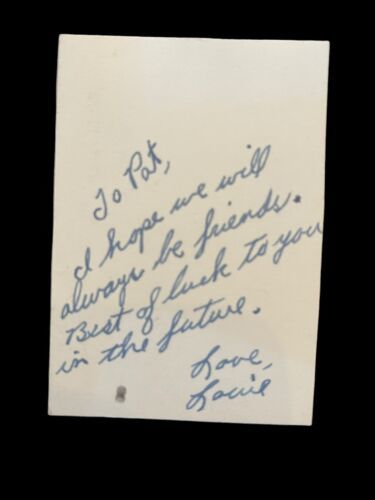 To Pat,
I hope we will
always be friends.
Best of luck to you
in the future.
Love,
Louie